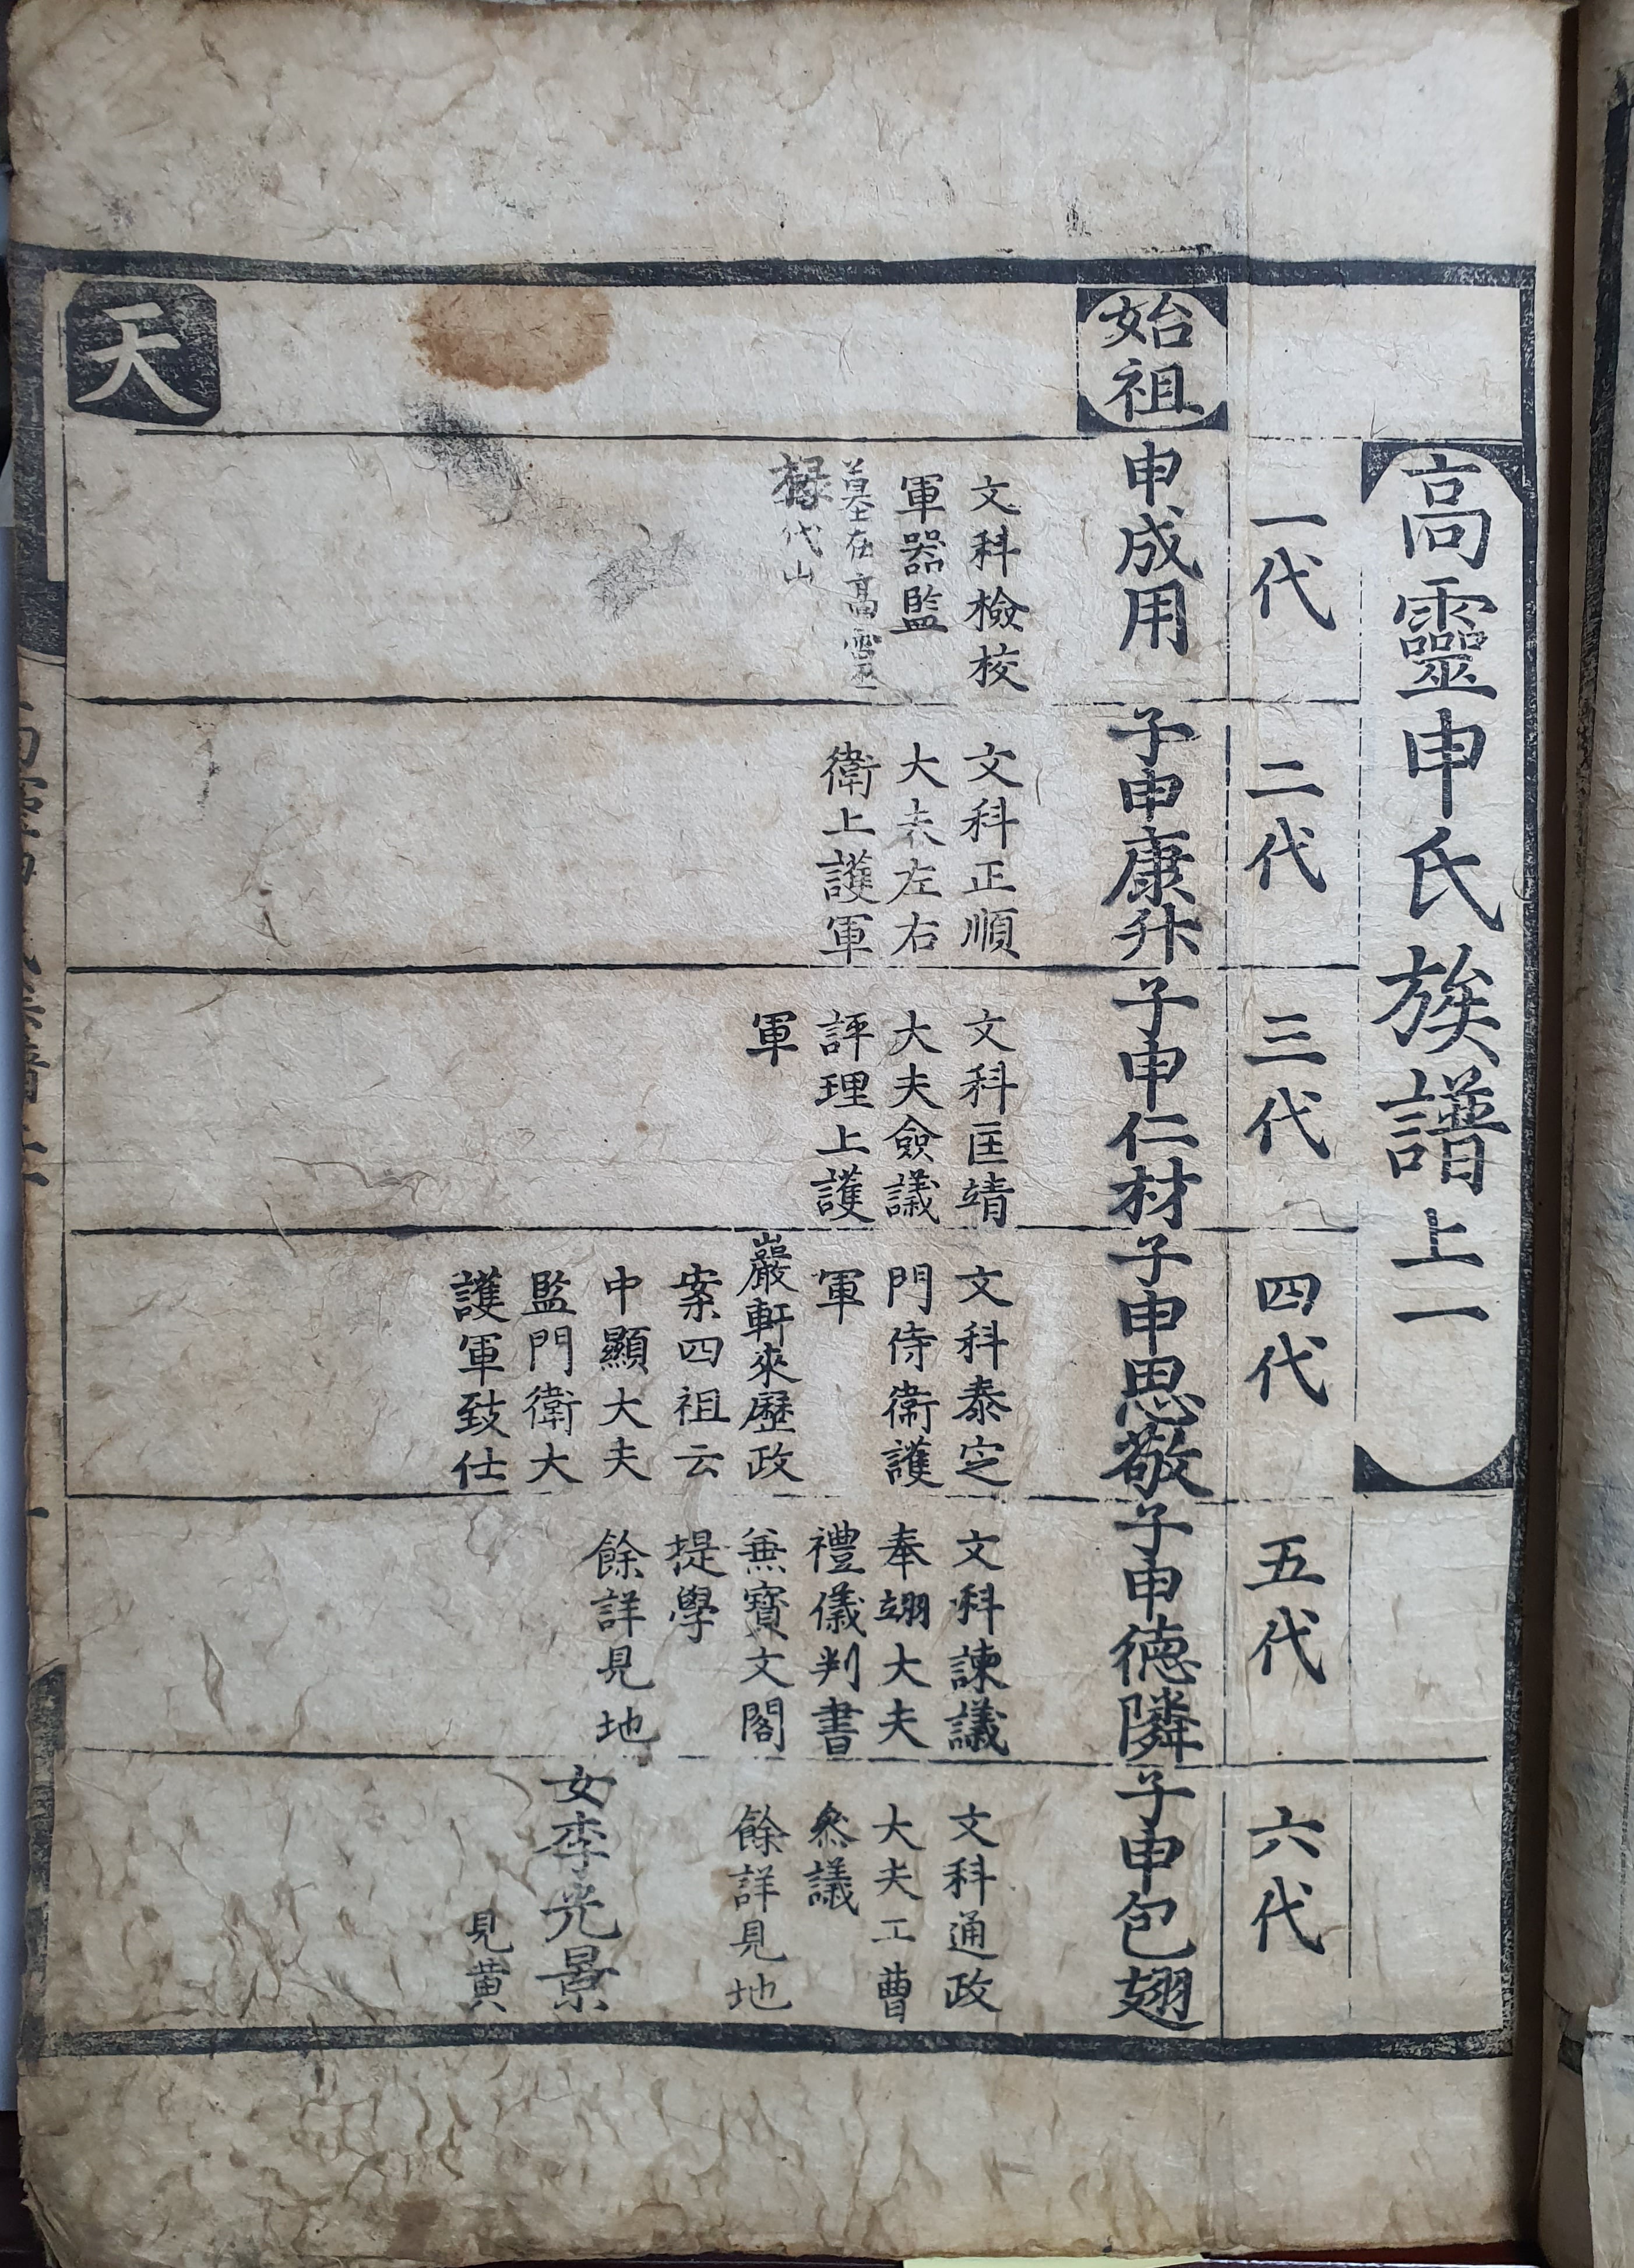 高靈申氏族譜上一
一代
二代
三代
四代
五代
六代
始祖
申成用
文科檢校
軍器監
墓在高靈
代山
子申康升
文科正順
大夫左右
衛上護軍
子申仁材
文科匡靖
大夫僉議
評理上護
軍
子申思敬
文科泰定
門侍衛護
軍
巖軒來歷政
案四祖云
中顯大夫
監門衛大
護軍致仕
子申德隣
文科諫議
奉翊大夫
禮儀判書
兼寶文閣
提學
餘詳見地
子申包翅
文科通政
大夫工曹
叅議
餘詳見地
女李光景
見黃
天